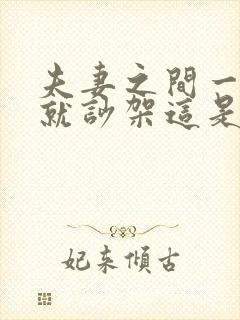 夫妻之間一
就訬架這是
妃来傾古